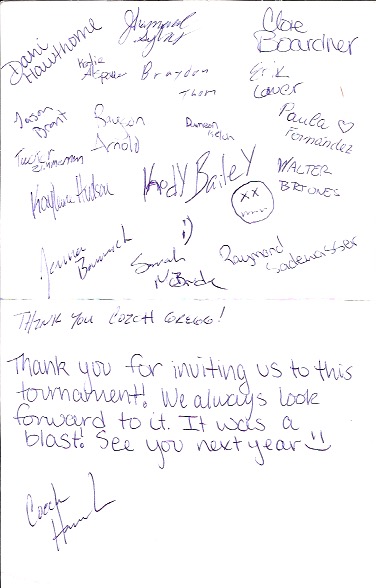 Dani
Hawthorne
Cloe
Boardner
Katie
Braydon
Thom
Erik
Lover
Jason
Brant
Reagan
Arnold
Duncan
Paula
Fernández
Tucker
Zimmerman
WALTER
BRIONES
Kaylynn Hudson
KodY BaileY
Jenna
Sarah
McBride
Raymond
Sadewasser
THANK YOU COACH GREGG!
Thank you for inviting us to this
tournament! We always look
forward to it. It was a
blast! See you next year
Coach